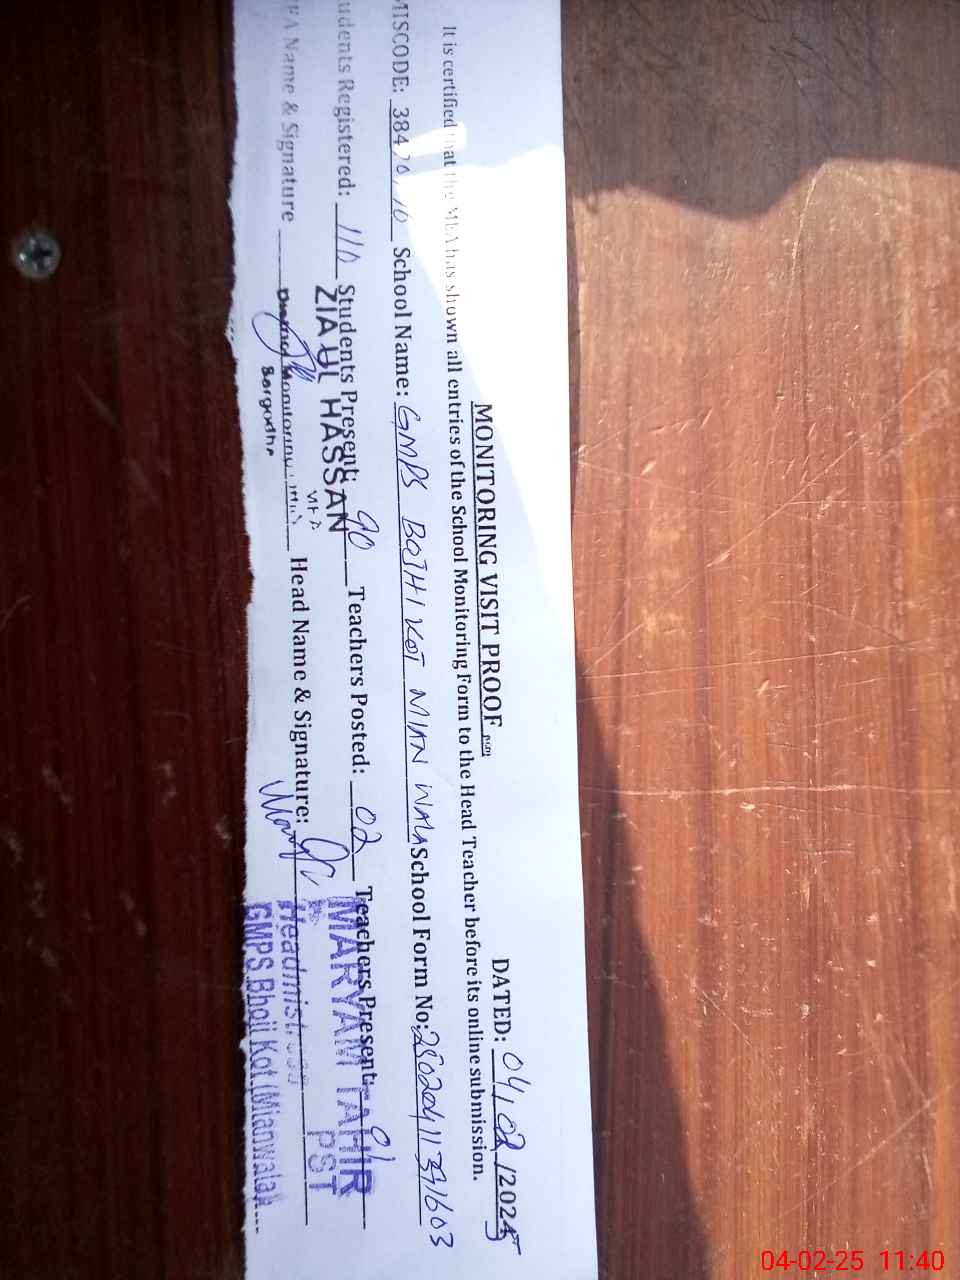 MONITORING VISIT PROOF
DATED: 04/02/2025
It is certified that the MEA has shown all entries of the School Monitoring Form to the Head Teacher before its online submission.
MISCODE: School Name: GMPS BOJHI KOT MIAN WALA School Form No:
udents Registered: 110 Students Present: 90 Teachers Posted: 02 Teachers Present: 01
EA Name & Signature Head Name & Signature:
ZIA UL HASSAN
MEA
Monitoring
Sargodha
MARYAM TAHIR
PST
Headmistress
GMPS Bhoji Kot (Mianwala)
04-02-25 11:40